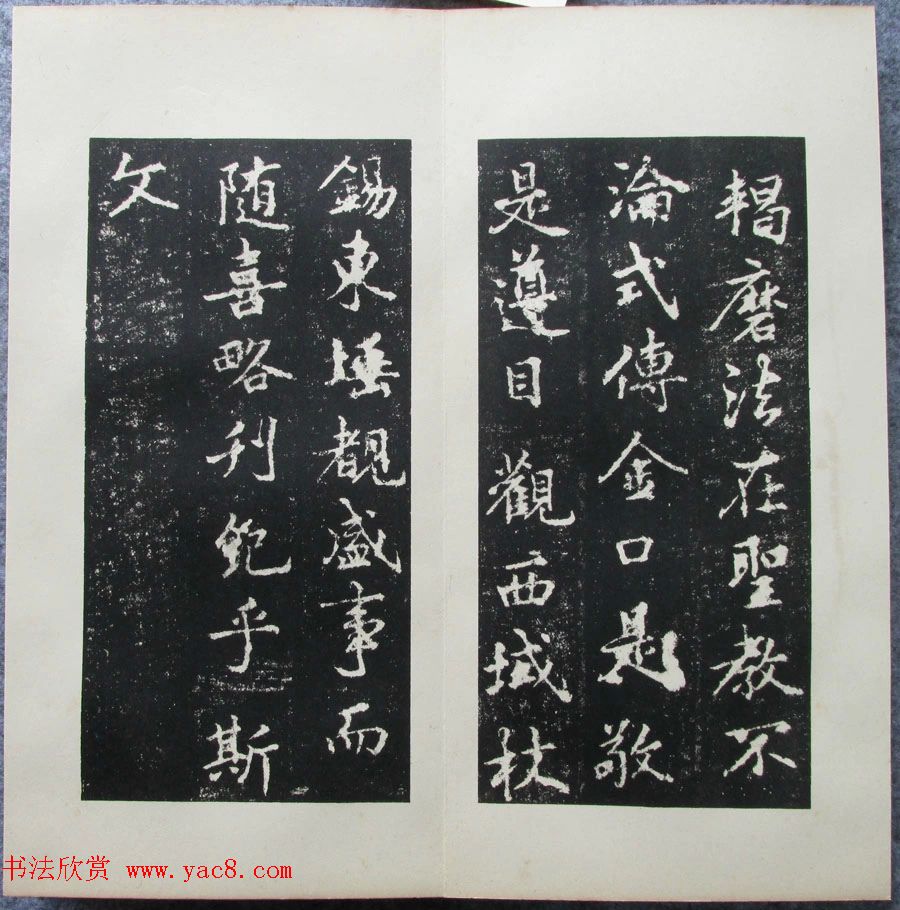 鞨磨法在聖教不
淪式傳金口是敬
是遵目觀西域杖
錫東埵覩盛事而
随喜略刋範乎斯
文
书法欣赏 www.yac8.com